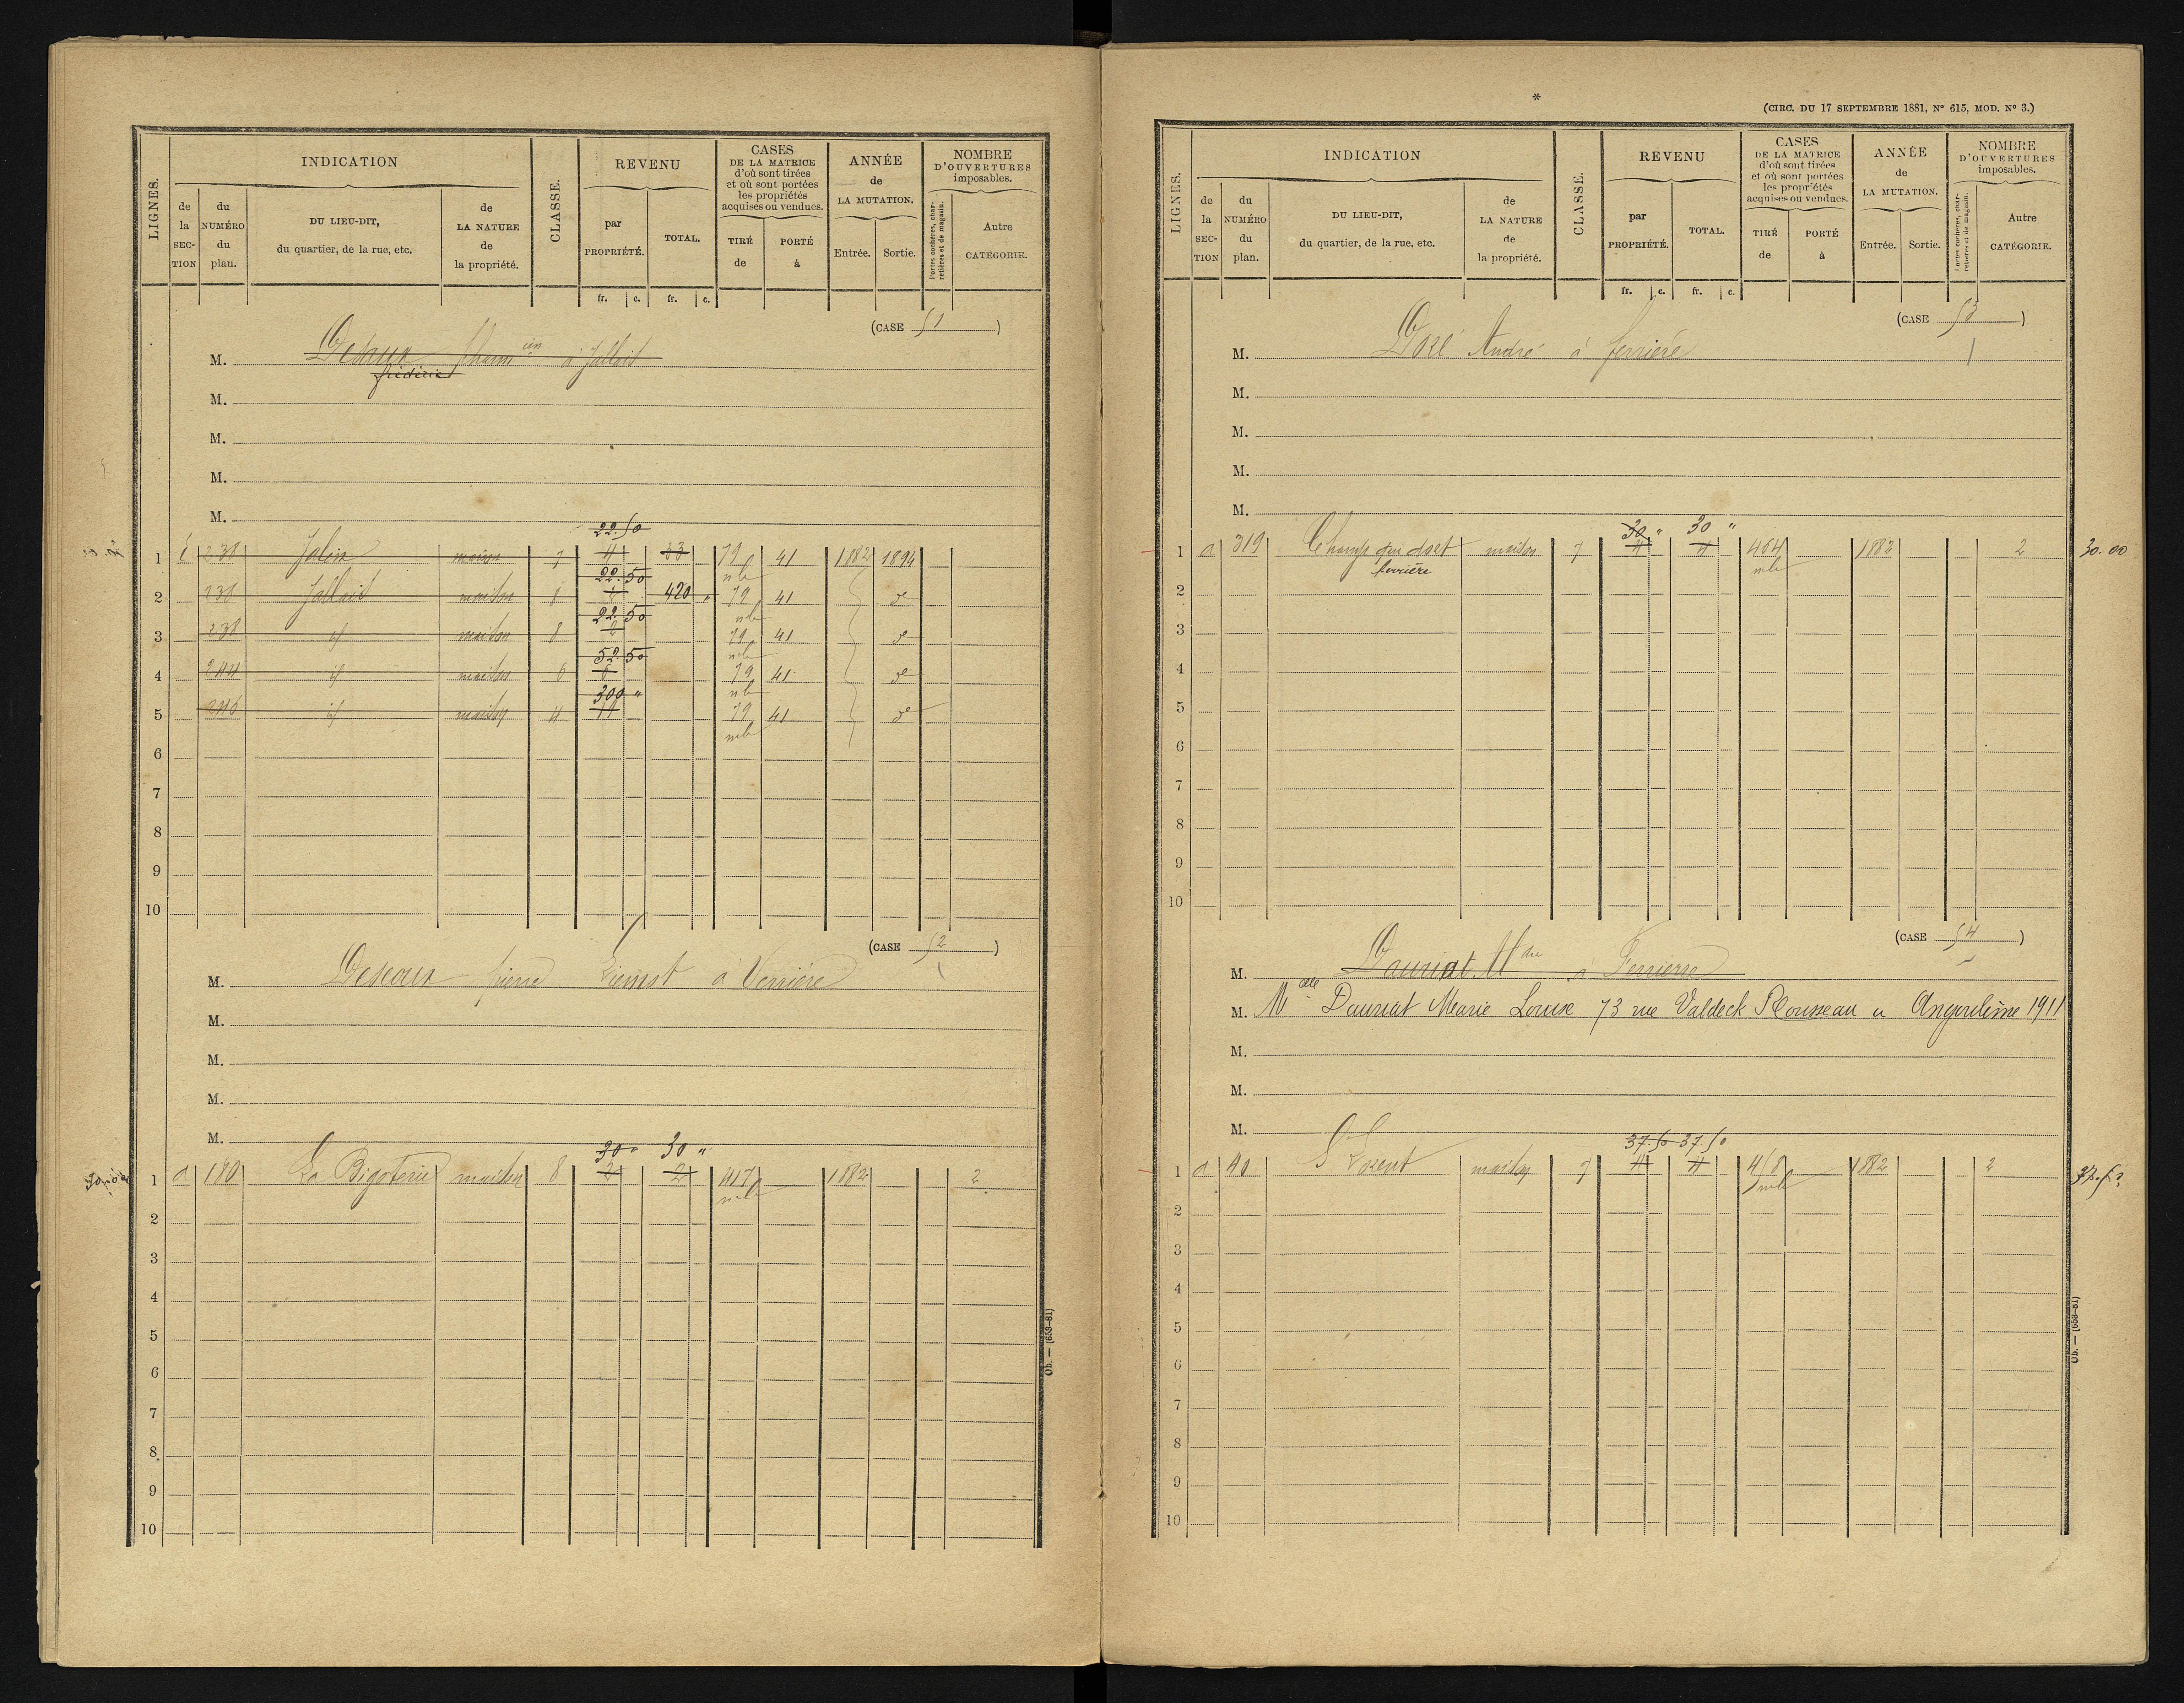 LIGNES.
INDICATION
de la SECTION
du NUMÉRO du plan.
DU LIEU-DIT, du quartier, de la rue, etc.
de LA NATURE de la propriété.
CLASSE.
REVENU
par PROPRIÉTÉ.
TOTAL.
fr. c. fr. c.
CASES DE LA MATRICE d'où sont tirées et où sont portées les propriétés acquises ou vendues.
TIRÉ de
PORTÉ à
ANNÉE de LA MUTATION.
Entrée. Sortie.
NOMBRE D'OUVERTURES imposables.
Portes cochères, charretières et de magasin.
Autre CATÉGORIE.
(CASE 51)
M. à Jallait
frédéric
M.
M.
M.
M.
22.50
1 238 maison 7 4 33 79 41 1882 1894
22.50 mle
2 238 Jallait maison 8 2 420 " 79 41 de
22.50 mle
3 238 id maison 8 2 79 41 de
52.50 mle
4 244 id maison 6 6 79 41 de
300 " mle
5 id maison 4 79 41 de
mle
6
7
8
9
10
(CASE 52)
M. pierre à
M.
M.
M.
M.
30 " 30 "
1 a 180 La Bigoterie maison 8 2 2 417 1882 2
mle
2
3
4
5
6
7
8
9
10
Ob. — (653-81)
*
(CIRC. DU 17 SEPTEMBRE 1881, N° 615, MOD. N° 3.)
LIGNES.
INDICATION
de la SECTION
du NUMÉRO du plan.
DU LIEU-DIT, du quartier, de la rue, etc.
de LA NATURE de la propriété.
CLASSE.
REVENU
par PROPRIÉTÉ.
TOTAL.
fr. c. fr. c.
CASES DE LA MATRICE d'où sont tirées et où sont portées les propriétés acquises ou vendues.
TIRÉ de
PORTÉ à
ANNÉE de LA MUTATION.
Entrée. Sortie.
NOMBRE D'OUVERTURES imposables.
Portes cochères, charretières et de magasin.
Autre CATÉGORIE.
(CASE 53)
M. Doré André à ferrière
M.
M.
M.
M.
30 " 30 "
1 a 319 Champ qui maison 7 4 4 464 1882 2 30.00
ferrière mle
2
3
4
5
6
7
8
9
10
(CASE 54)
M. Dauriat à Ferrière
M. Melle Dauriat Marie Louise 73 rue Valdeck Rousseau a Angoulème 1911
M.
M.
M.
37.50 37.50
1 a 40 maison 7 4 4 1882 2 37.50
mle
2
3
4
5
6
7
8
9
10
Ob. — (653-81)